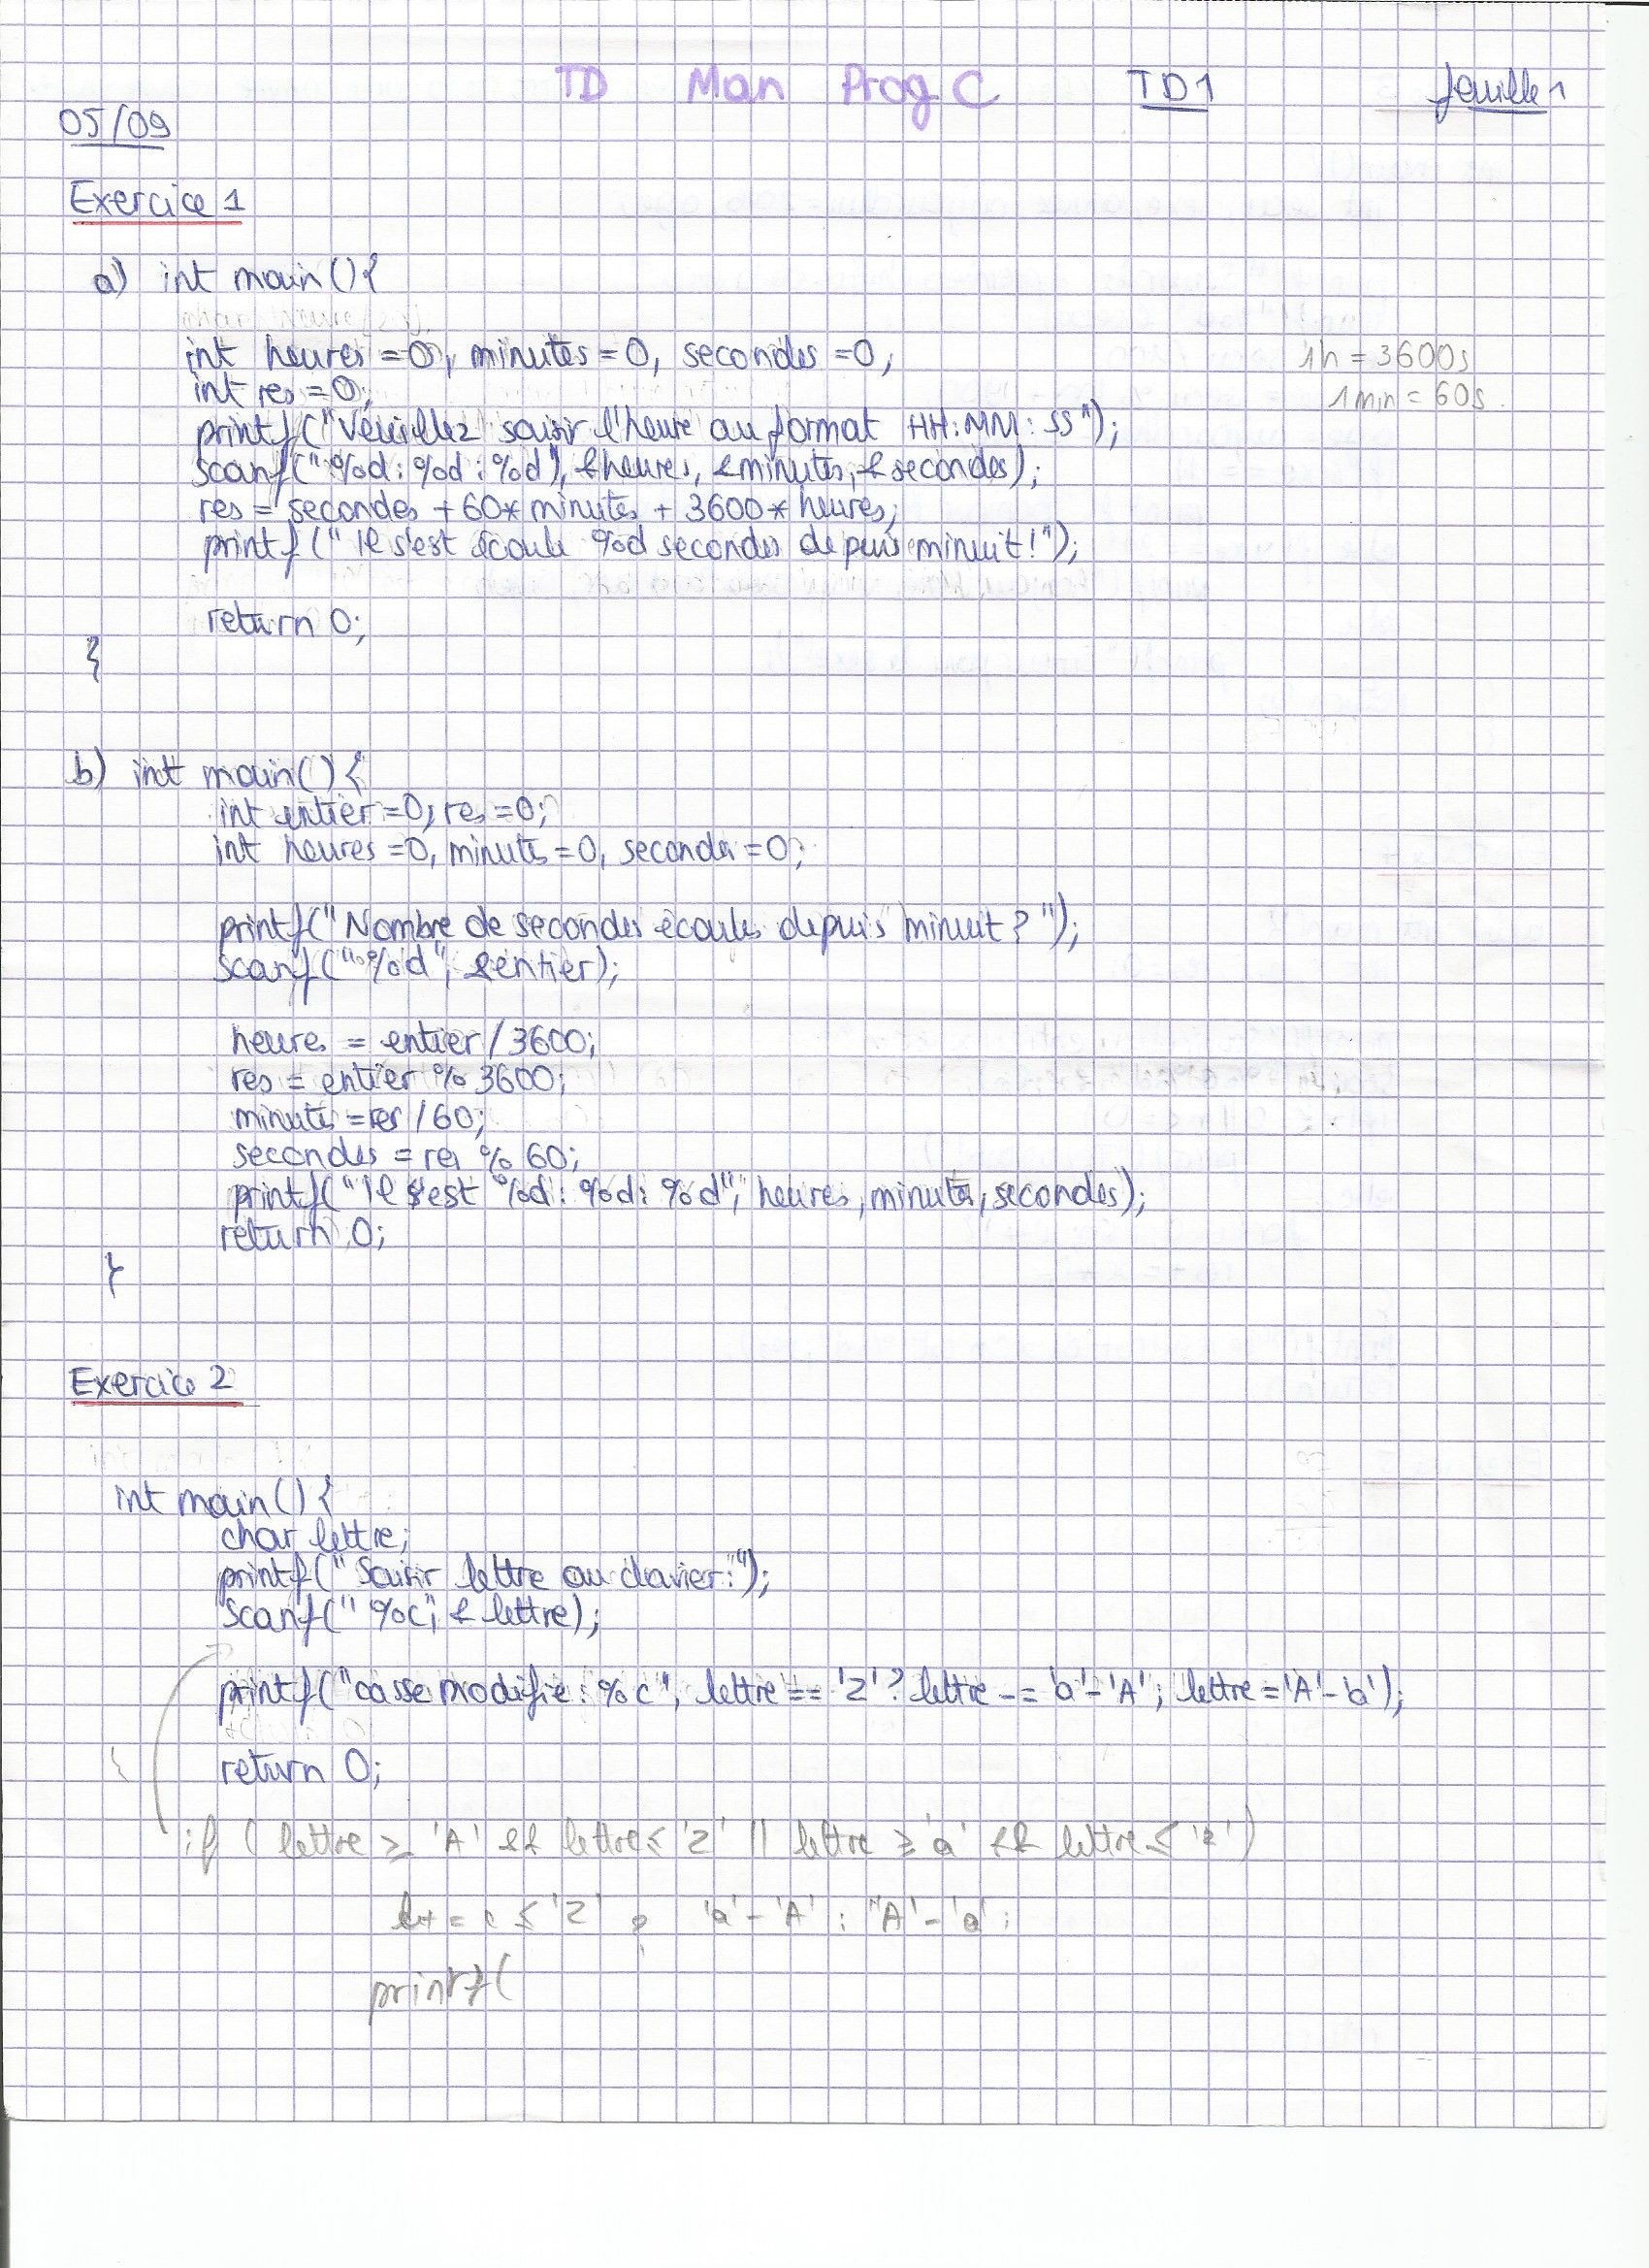 TD Man Prog C TD1 feuille 1
05/09
Exercice 1
a) int main(){
int heures = 0, minutes = 0, secondes = 0;
1h = 3600s
int res = 0;
1 min = 60s.
printf("Veuillez saisir l'heure au format HH:MM:SS");
scanf("%d:%d:%d"), &heures, &minutes, &secondes);
res = secondes + 60* minutes + 3600* heures;
printf("Il s'est écoulé %d secondes depuis minuit!");
return 0;
}
b) int main(){
int entier = 0, res = 0;
int heures = 0, minutes = 0, secondes = 0;
printf("Nombre de secondes écoulés depuis minuit ? ");
scanf("%d", &entier);
heures = entier / 3600;
res = entier % 3600;
minutes = res / 60;
secondes = res % 60;
printf("Il s'est %d:%d:%d", heures, minutes, secondes);
return 0;
}
Exercice 2
int main(){
char lettre;
printf("Saisir lettre au clavier:");
scanf(" %c", &lettre);
printf("casse modifié : %c", lettre == 'Z' ? lettre -= 'a'-'A' ; lettre = 'A'-'a');
return 0;
}
if ( lettre ≥ 'A' && lettre ≤ 'Z' || lettre ≥ 'a' && lettre ≤ 'z')
≤ 'Z' ? 'a'-'A' : 'A'-'a';
printf(